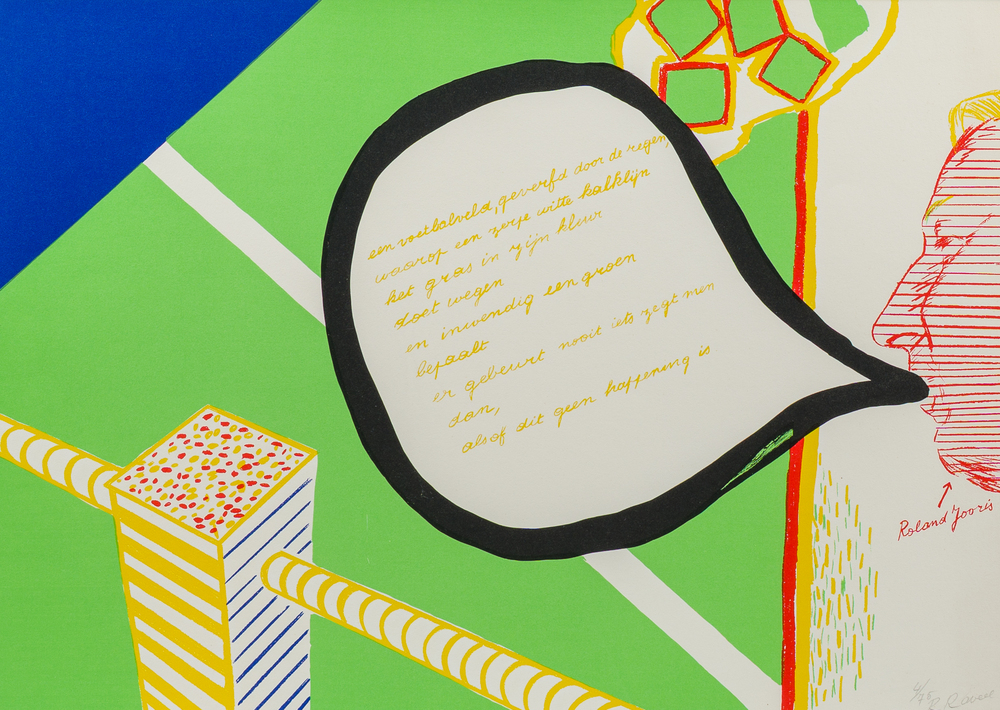 een voetbalveld, geverfd door de regen,
waarop een zerpe witte kalklijn
het gras in zijn kleur
doet wegen
en inwendig een groen
bepaalt
er gebeurt nooit iets zegt men
dan,
alsof dit geen happening is
Roland Jooris